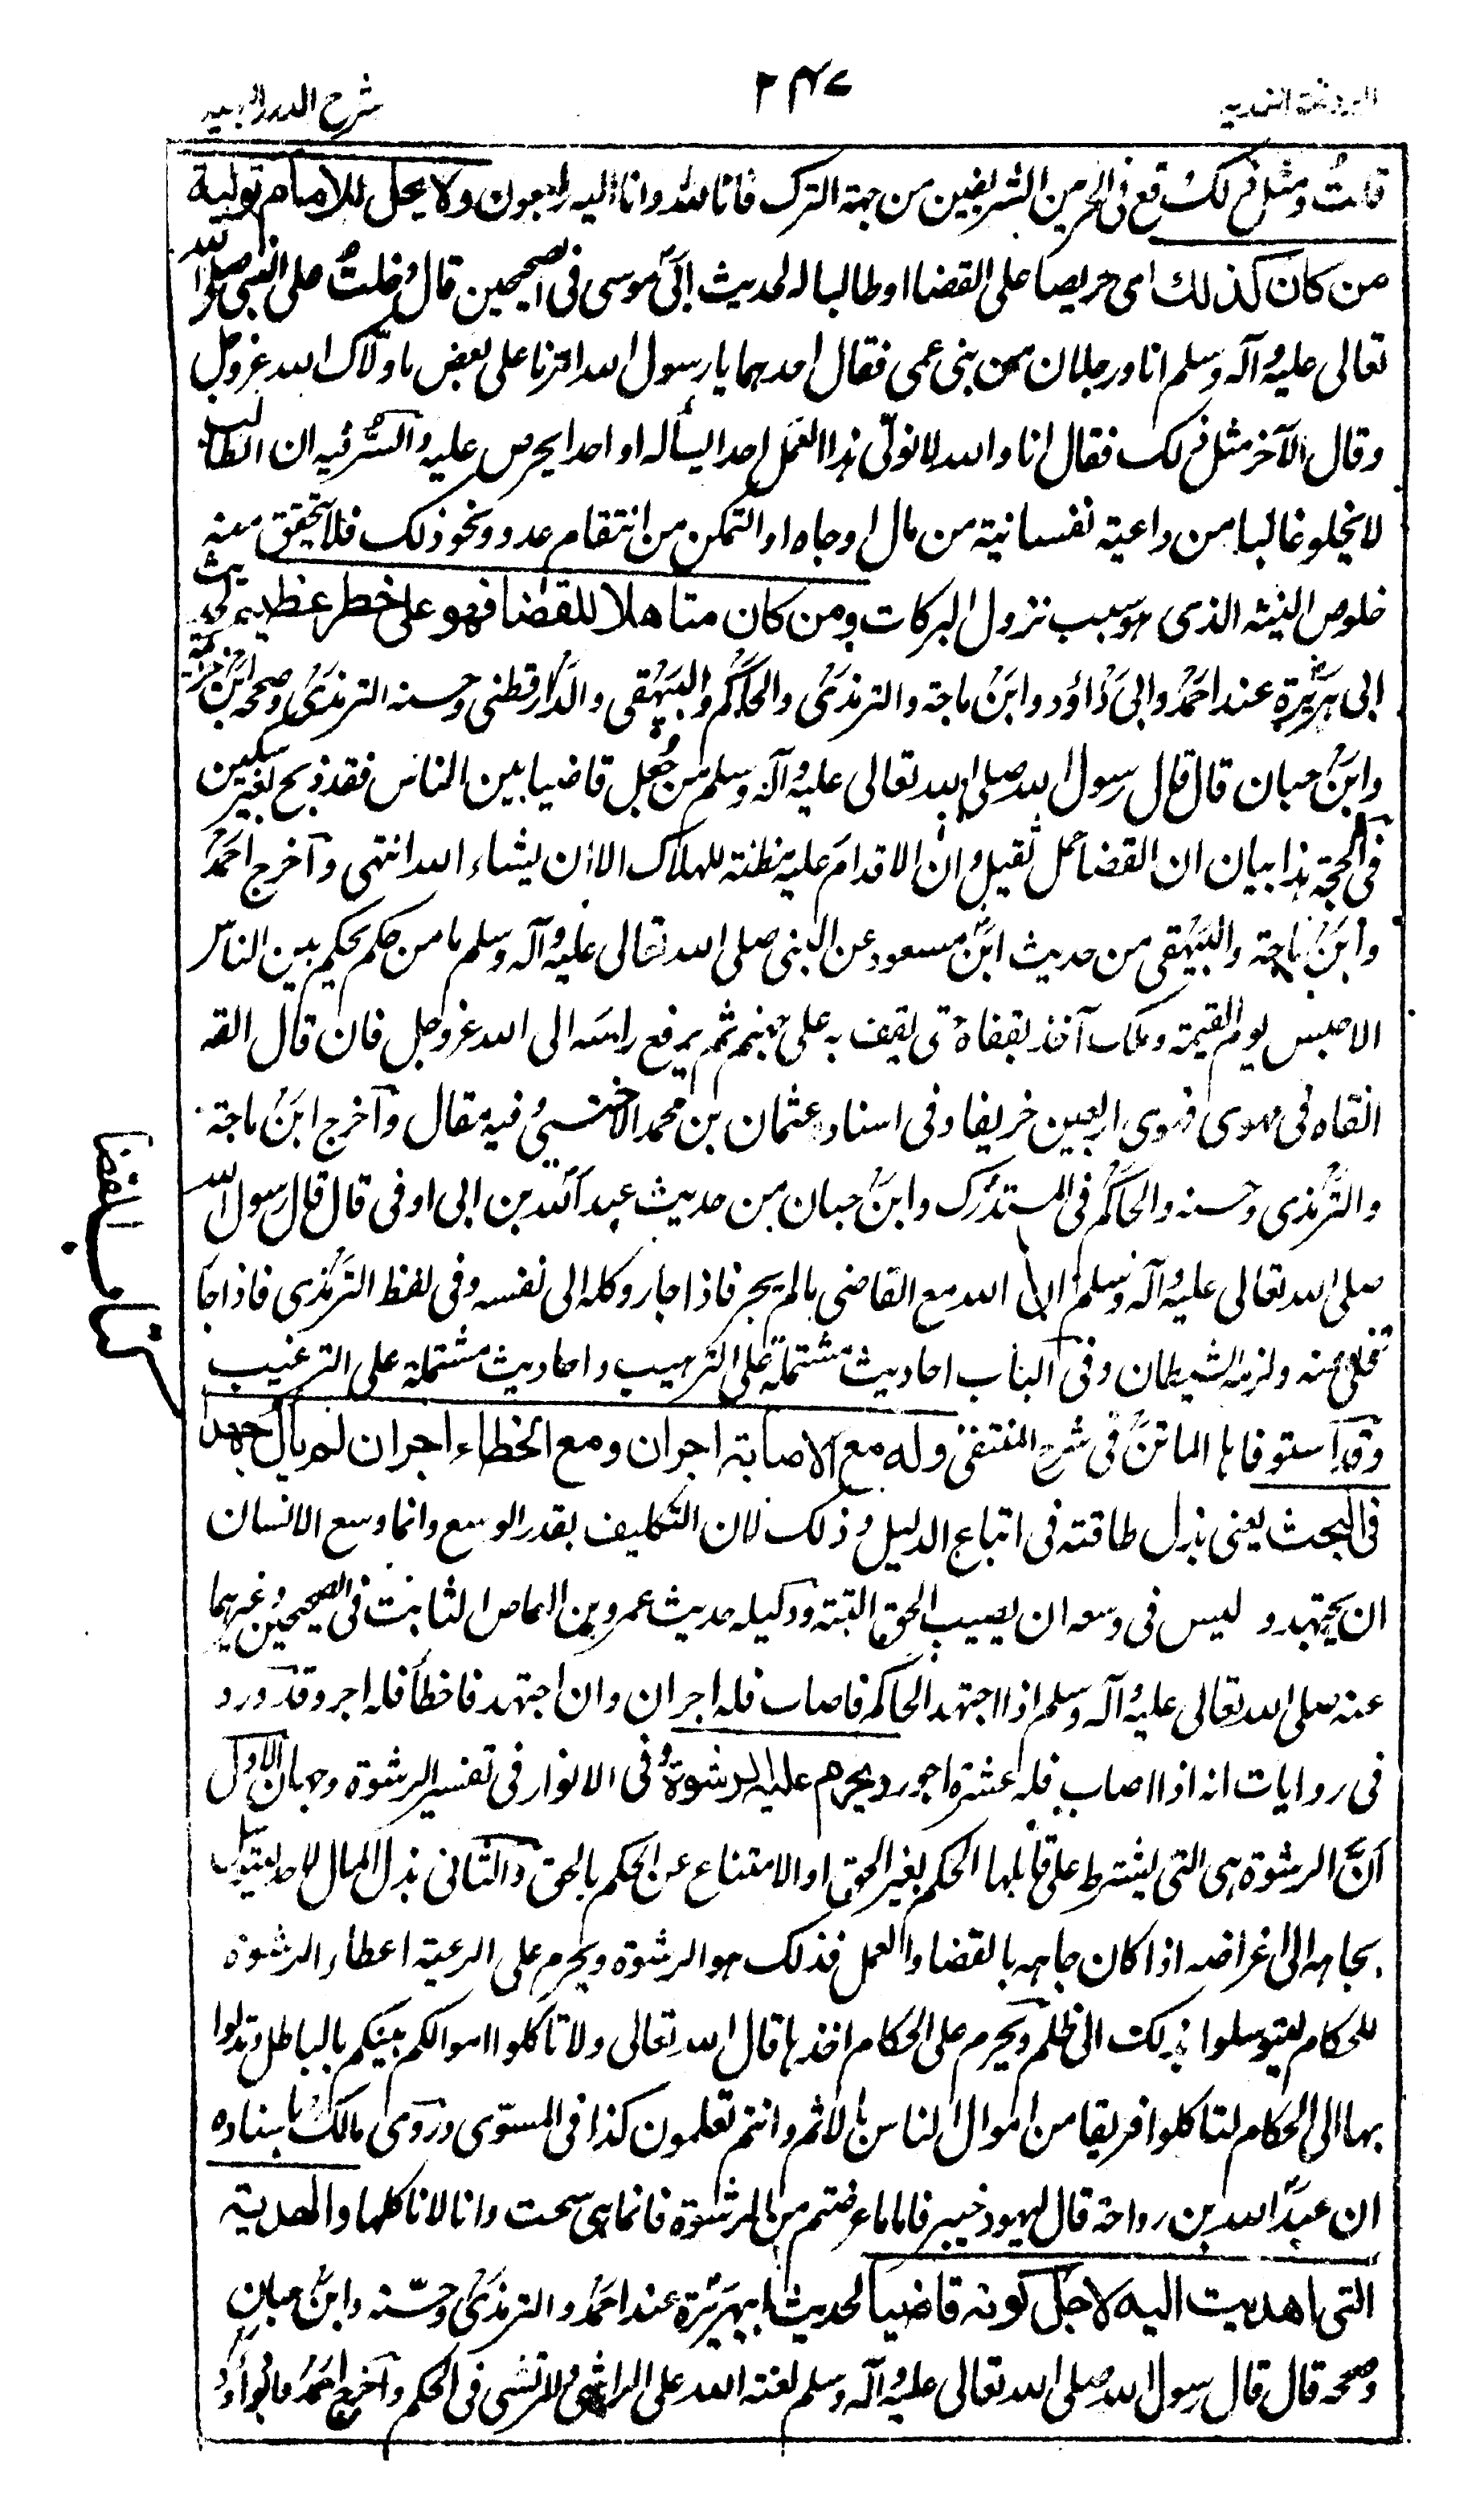 الروضة الندية ٢٤٧ شرح الدرر البهية
قلت ومثل ذلك وقع فى الحرمين الشريفين من جهة الترك فانا لله وانا اليه راجعون ولا يحل للامام تولية
من كان كذلك اى حريصا على القضا او طالبا له لحديث ابى موسى فى الصحيحين قال دخلت على النبى صلى الله
تعالى عليه وآله وسلم انا ورجلان من بنى عمى فقال احدهما يا رسول الله امرنا على بعض ما ولاك الله عز وجل
وقال الآخر مثل ذلك فقال انا والله لا نولى هذا العمل احدا يسأله او احدا يحرص عليه والسر فيه ان الطالب
لا يخلو غالبا من داعية نفسانية من مال او جاه او التمكن من انتقام عدو ونحو ذلك فلا يتحقق منه
خلوص النية الذى هو سبب نزول البركات ومن كان متاهلا للقضا فهو على خطر عظيم لحديث
ابى هريرة عند احمد وابى داؤد وابن ماجة والترمذى والحاكم والبيهقى والدارقطنى وحسنه الترمذى وصححه ابن خزيمة
وابن حبان قال قال رسول الله صلى الله تعالى عليه وآله وسلم من جعل قاضيا بين الناس فقد ذبح بغير سكين
فى الحجة هذا بيان ان القضا حمل ثقيل وان الاقدام عليه مظنة للهلاك الا ان يشاء الله انتهى وآخرج احمد
وابن ماجة والبيهقى من حديث ابن مسعود عن النبى صلى الله تعالى عليه وآله وسلم ما من حكم يحكم بين الناس
الا حبس يوم القيمة وملك آخذ بقفاه حتى يقف به على جهنم ثم يرفع راسه الى الله عز وجل فان قال القه
القاه فى مهوى فهوى اربعين خريفا وفى اسناده عثمان بن محمد الاخنسى وفيه مقال وآخرج ابن ماجة
والترمذى وحسنه والحاكم فى المستدرك وابن حبان من حديث عبد الله بن ابى اوفى قال قال رسول الله
صلى الله تعالى عليه وآله وسلم ان الله مع القاضى ما لم يجر فاذا جار وكله الى نفسه وفى لفظ الترمذى فاذا جار
تخلى عنه ولزمه الشيطان وفى الباب احاديث مشتملة على الترهيب واحاديث مشتملة على الترغيب
وقد استوفاها الماتن فى شرح المنتقى وله مع الاصابة اجران ومع الخطاء اجر ان لم يال جهدا
فى البحث يعنى بذل طاقته فى اتباع الدليل وذلك لان التكليف بقدر الوسع وانما وسع الانسان
ان يجتهد وليس فى وسعه ان يصيب الحق البتة ودليله حديث عمرو بن العاص الثابت فى الصحيحين وغيرهما
عنه صلى الله تعالى عليه وآله وسلم اذا اجتهد الحاكم فاصاب فله اجران وان اجتهد فاخطأ فله اجر وقد ورد
فى روايات انه اذا اصاب فله عشرة اجور ويحرم عليه الرشوة فى الانوار فى تفسير الرشوة وجهان الاول
ان الرشوة هى التى يشترط على قابلها الحكم بغير الحق او الامتناع عن الحكم بالحق والثانى بذل المال لاحد ليتوسل
بجاهه الى اغراضه اذا كان جاهه بالقضا والعمل فذلك هو الرشوة ويحرم على الرعية اعطاء الرشوة
للحكام ليتوسلوا بذلك الى ظلم ويحرم على الحكام اخذها قال الله تعالى ولا تاكلوا اموالكم بينكم بالباطل وتدلوا
بها الى الحكام لتاكلوا فريقا من اموال الناس بالاثم وانتم تعلمون كذا فى المسوى وروى مالك باسناده
ان عبد الله بن رواحة قال ليهود خيبر فاما ما عرضتم من الرشوة فانما هى سحت وانا لا ناكلها والهدية
التى اهديت اليه لاجل كونه قاضيا لحديث ابى هريرة عند احمد والترمذى وحسنه وابن حبان
وصححه قال قال رسول الله صلى الله تعالى عليه وآله وسلم لعنة الله على الراشى والمرتشى فى الحكم وآخرج احمد وابو داؤد